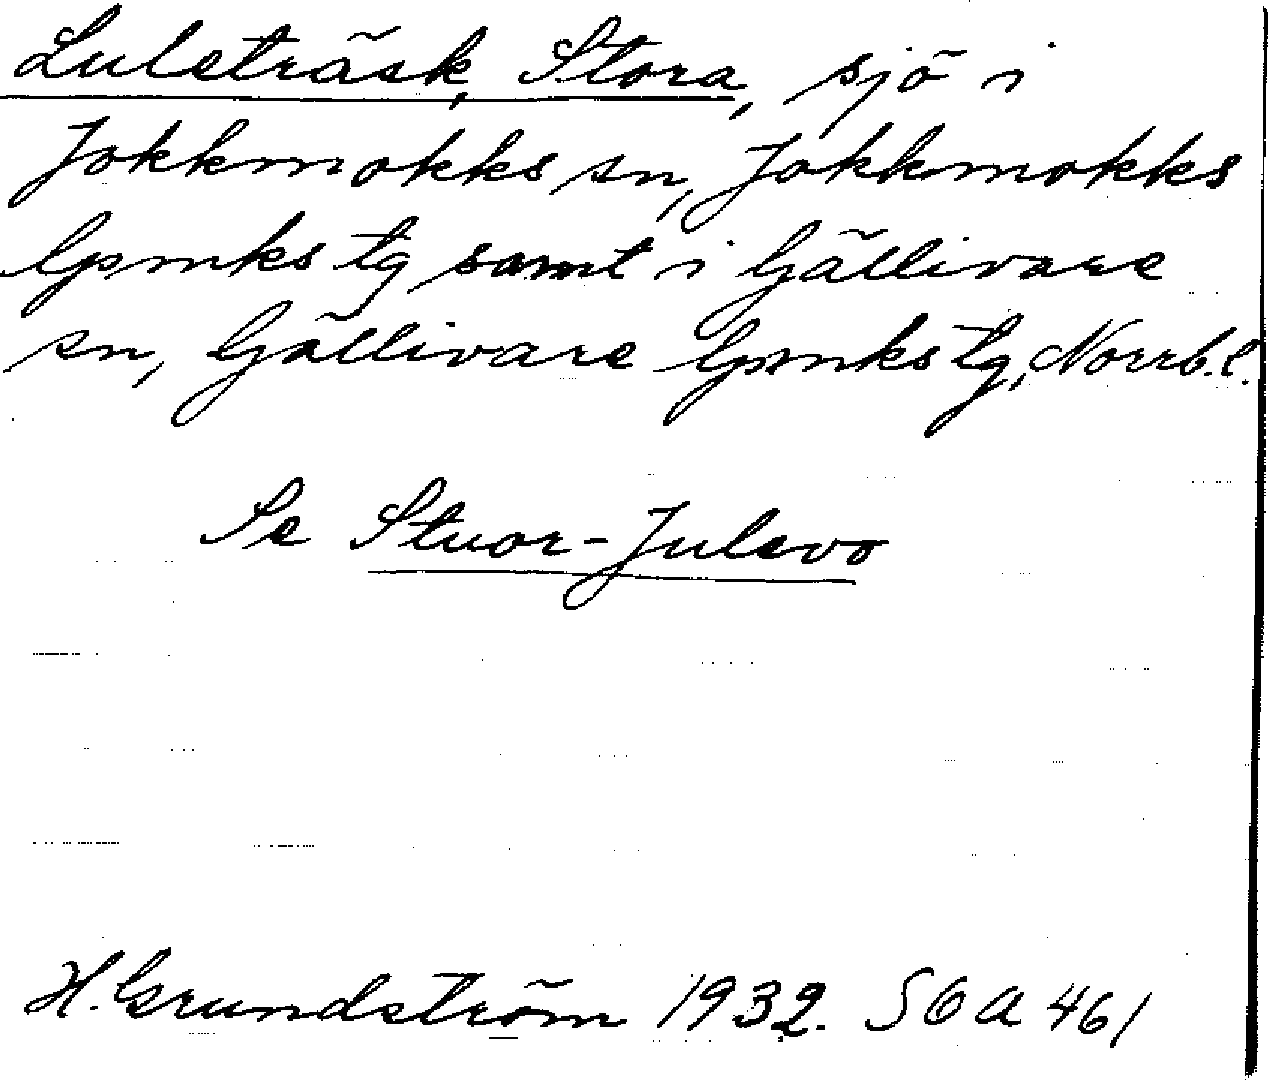 Luleträsk, Stora, sjö i
Jokkmokks sn, Jokkmokks
lpmks tg samt i Gällivare
sn, Gällivare lpmks tg, Norrb. l.
Se Stuor-Julevo
H. Grundström 1932. SOA 461